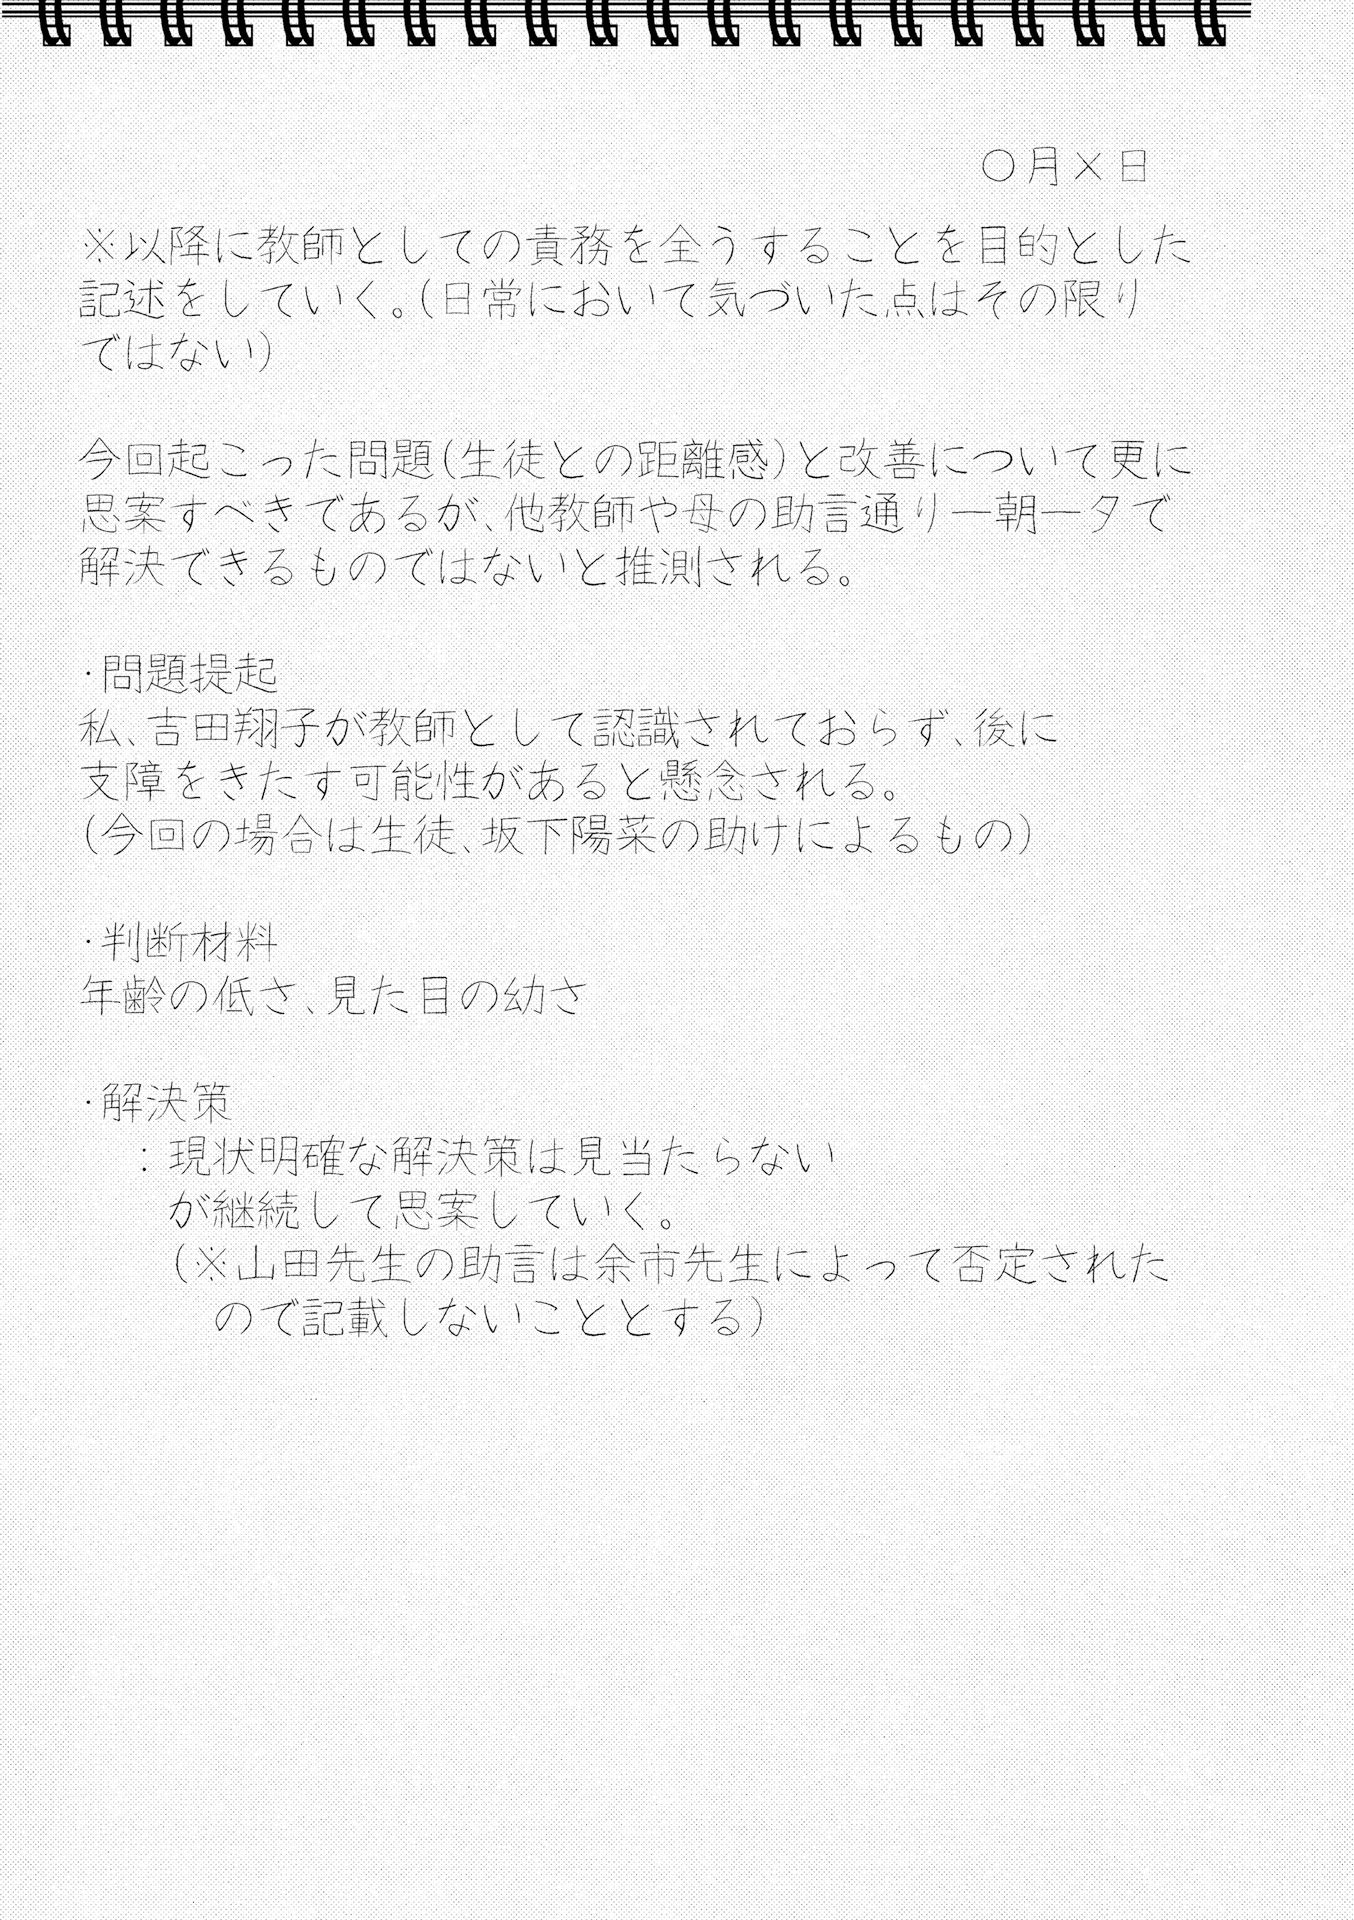 〇月×日
※以降に教師としての責務を全うすることを目的とした
記述をしていく。(日常において気づいた点はその限り
ではない)
今回起こった問題(生徒との距離感)と改善について更に
思案すべきであるが、他教師や母の助言通り一朝一夕で
解決できるものではないと推測される。
・問題提起
私、吉田翔子が教師として認識されておらず、後に
支障をきたす可能性があると懸念される。
(今回の場合は生徒、坂下陽菜の助けによるもの)
・判断材料
年齢の低さ、見た目の幼さ
・解決策
：現状明確な解決策は見当たらない
が継続して思案していく。
(※山田先生の助言は余市先生によって否定された
ので記載しないこととする)